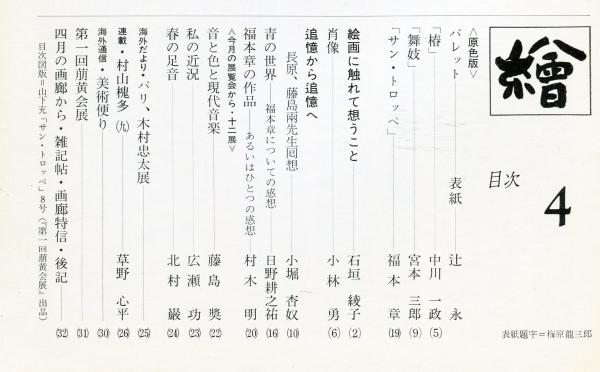 繪
目次
4
表紙題字＝梅原龍三郎
〈原色版〉
パレット 表紙 辻永
「椿」 中川一政 (5)
「舞妓」 宮本三郎 (9)
「サン・トロッペ」 福本章 (19)
絵画に触れて想うこと 石垣綾子 (2)
肖像 小林勇 (6)
追憶から追憶へ
長原、藤島両先生回想 小堀杏奴 (10)
青の世界 福本章についての感想 日野耕之祐 (16)
福本章の作品 あるいはひとつの感想 村木明 (20)
〈今月の展覧会から・十二展〉
音と色と現代音楽 藤島奬 (22)
私の近況 広瀬功 (23)
春の足音 北村巌 (24)
海外だより・パリ、木村忠太展 (25)
連載・村山槐多(九) 草野心平 (26)
海外通信・美術便り (30)
第一回萠黄会展 (31)
四月の画廊から・雑記帖・画廊特信・後記 (32)
目次図版＝山下充「サン・トロッペ」8号(『第一回萠黄会展』出品)